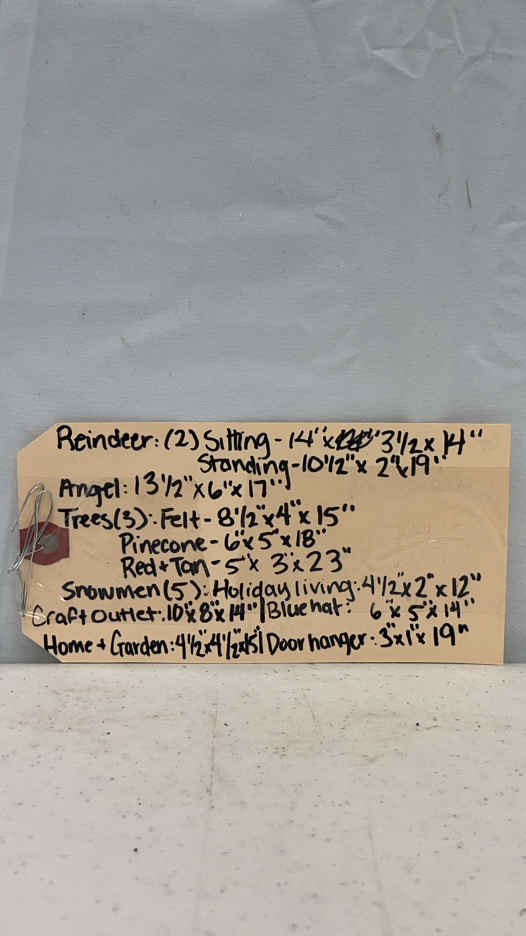 Reindeer: (2) Sitting - 14" x 3 1/2 x 14"
Standing - 10 1/2" x 2" x 19"
Angel: 13 1/2" x 6" x 17"
Trees (3): Felt - 8 1/2" x 4" x 15"
Pinecone - 6" x 5" x 18"
Red + Tan - 5" x 3" x 23"
Snowmen (5): Holiday living: 4 1/2" x 2" x 12"
Craft Outlet: 10" x 8" x 14" | Blue hat: 6" x 5" x 14"
Home + Garden: 4 1/2" x 4 1/2" x 15" | Door hanger: 3" x 1" x 19"